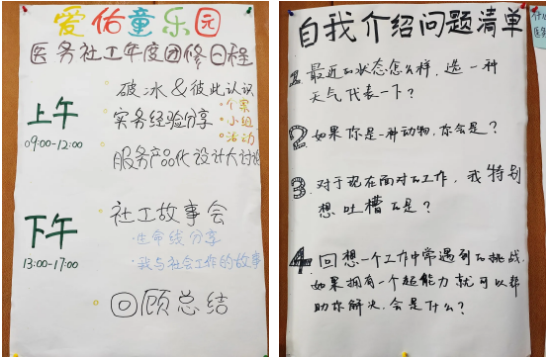 爱佑童乐园
医务社工年度团修日程
破冰&彼此认识
上午
09:00-12:00
实务经验分享
·个案
·小组
·活动
服务产品化设计大讨论
下午
13:00-17:00
社工故事会
·生命线分享
·我与社会工作的故事
回顾总结
自我介绍问题清单
1 最近的状态怎么样,选一种
天气代表一下?
2 如果你是一种动物,你会是?
3. 对于现在面对的工作,我特别
想吐槽的是?
4 回想一个工作中常遇到的挑战,
如果拥有一个超能力就可以帮
助你解决,会是什么?